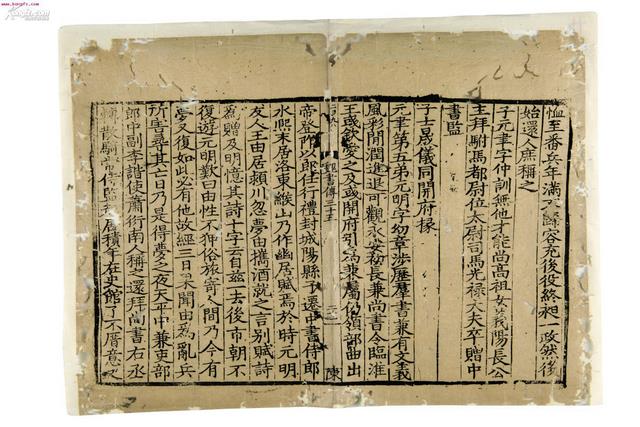 恤至番兵年滿不歸容充後役終昶一政然後
始還人庶稱之
子元聿字仲訓無他才能尚高祖女義陽長公
主拜駙馬都尉位太尉司馬光祿大夫卒贈中
書監
子士晟儀同開府掾
元聿第五弟元明字幼章涉歷羣書兼有文義
風彩閑潤進退可觀永安初長兼尚書令臨淮
王彧欽愛之及彧開府引為兼屬仍領部曲出
魏書傳三十
陳
帝登阼以郎任行禮封城陽縣子遷中書侍郎
永熙末居洛東緱山乃作幽居賦焉於時元明
友人王由居潁川忽夢由攜酒就之言別賦詩
為贈及明憶其詩十字云自茲一去後市朝不
復遊元明歎曰由性不狎俗旅寄人間乃今有
夢又復如此必有他故經三日果聞由為亂兵
所害尋其亡日乃是得夢之夜天平中兼吏部
郎中副李諧使蕭衍南人稱之還拜尚書右丞
轉散騎常侍監起居積年在史館了不厝意又
www.kongfz.com